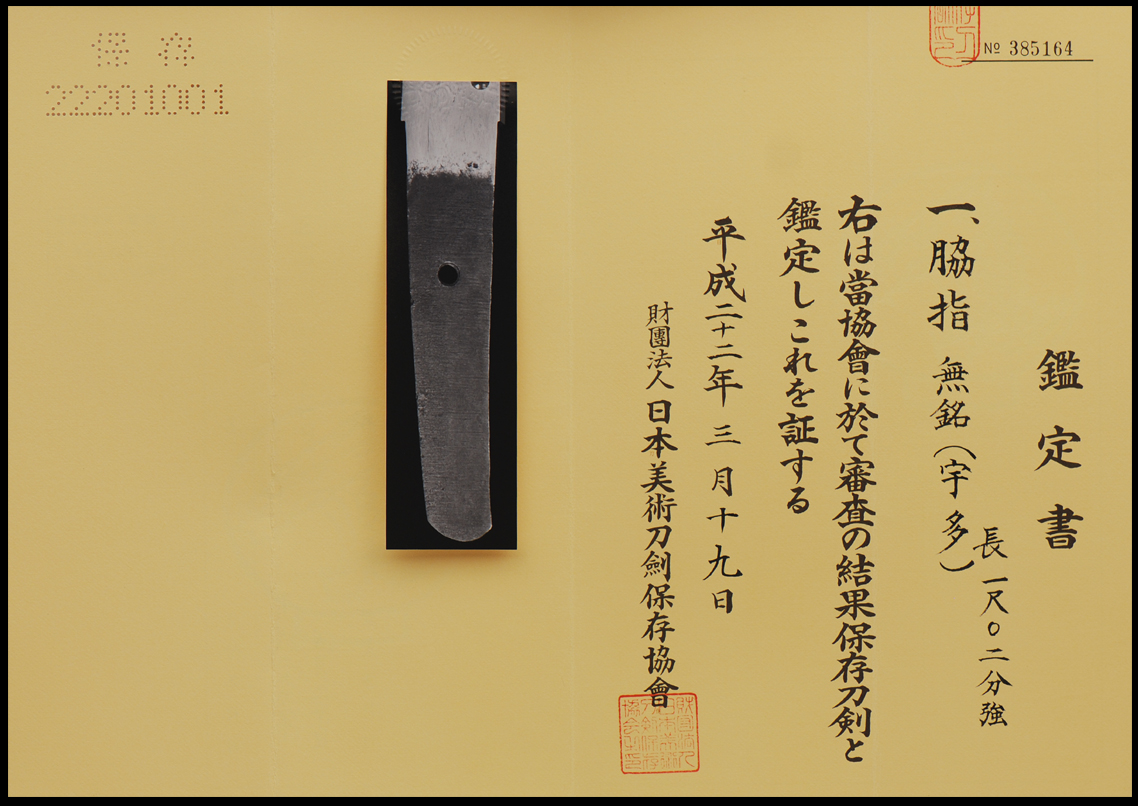 No 385164
鑑定書
一、脇指 無銘(宇多)
長一尺〇二分強
右は當協會に於て審査の結果保存刀剣と
鑑定しこれを証する
平成二十二年三月十九日
財團法人 日本美術刀劍保存協會
保存
22201001